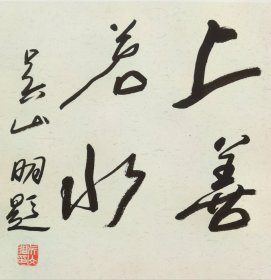 上善
若水
吴山明题